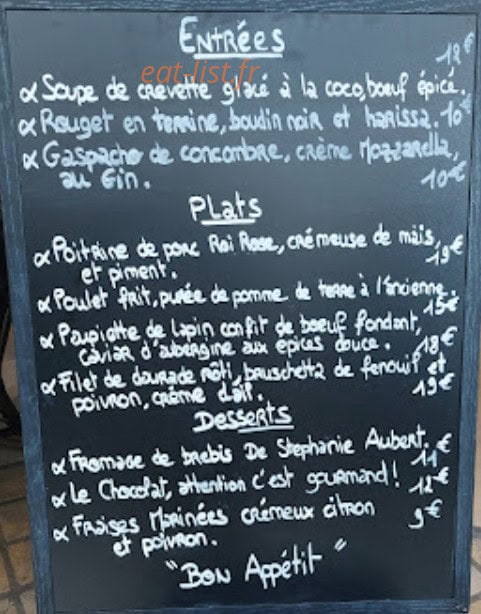 Entrées
eat-list.fr
12€
∝ Soupe de crevette glacé à la coco, boeuf épicé.
∝ Rouget en terrine, boudin noir et harissa. 10€
∝ Gaspacho de concombre, crème Mozzarella,
au Gin. 10€
Plats
∝ Poitrine de porc Roi Rose, crémeuse de maïs, 19€
et piment.
∝ Poulet frit, purée de pomme de terre à l'ancienne.
15€
∝ Paupiette de lapin confit de boeuf fondant,
caviar d'aubergine aux épices douce. 18€
∝ Filet de daurade rôti, bruschetta de fenouil et
poivron, crème d'ail. 19€
Desserts
∝ Fromage de brebis De Stephanie Aubert. 11€
∝ Le Chocolat, attention c'est gourmand! 12€
∝ Fraises Marinées crémeux citron 9€
et poivron.
"Bon Appétit"